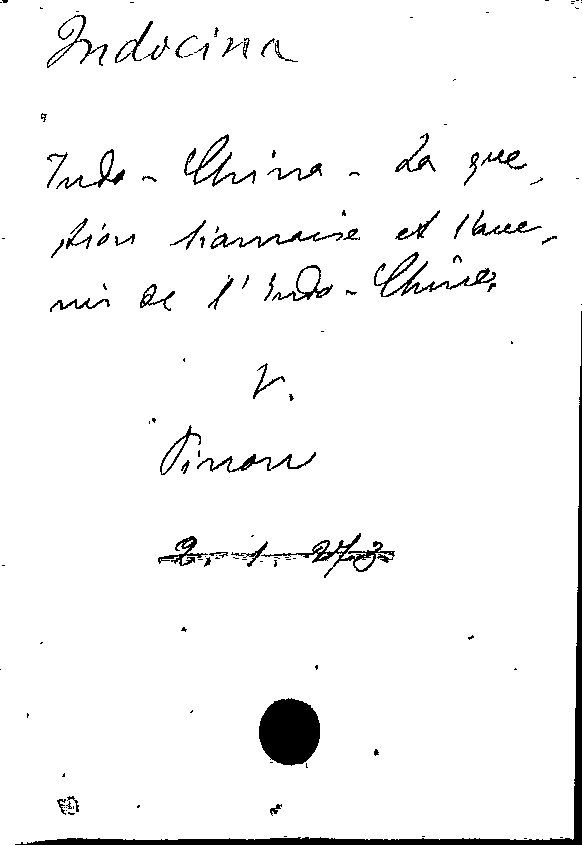 Indocina
Indo-China - La que,
stion siamaise et l'ave,
nir de l'Indo-Chine.
V.
Pinon
2. 1. 273